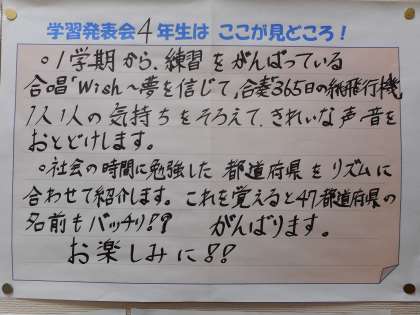 学習発表会4年生は ここが見どころ！
○1学期から、練習をがんばっている
合唱「Wish～夢を信じて」、合奏「365日の紙飛行機」
1人1人の気持ちをそろえて、きれいな声・音を
おとどけします。
○社会の時間に勉強した 都道府県をリズムに
合わせて紹介します。これを覚えると47都道府県の
名前もバッチリ!? がんばります。
お楽しみに!!